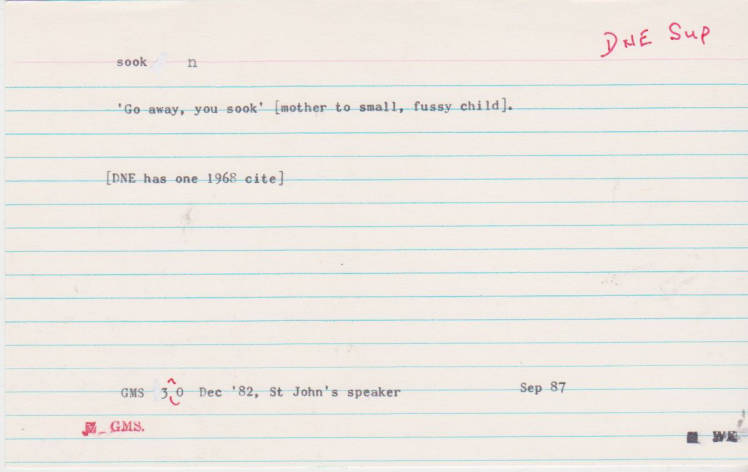 DNE Sup
sook n
'Go away, you sook' [mother to small, fussy child].
[DNE has one 1968 cite]
GMS 30 Dec '82, St John's speaker Sep 87
GMS.
WK